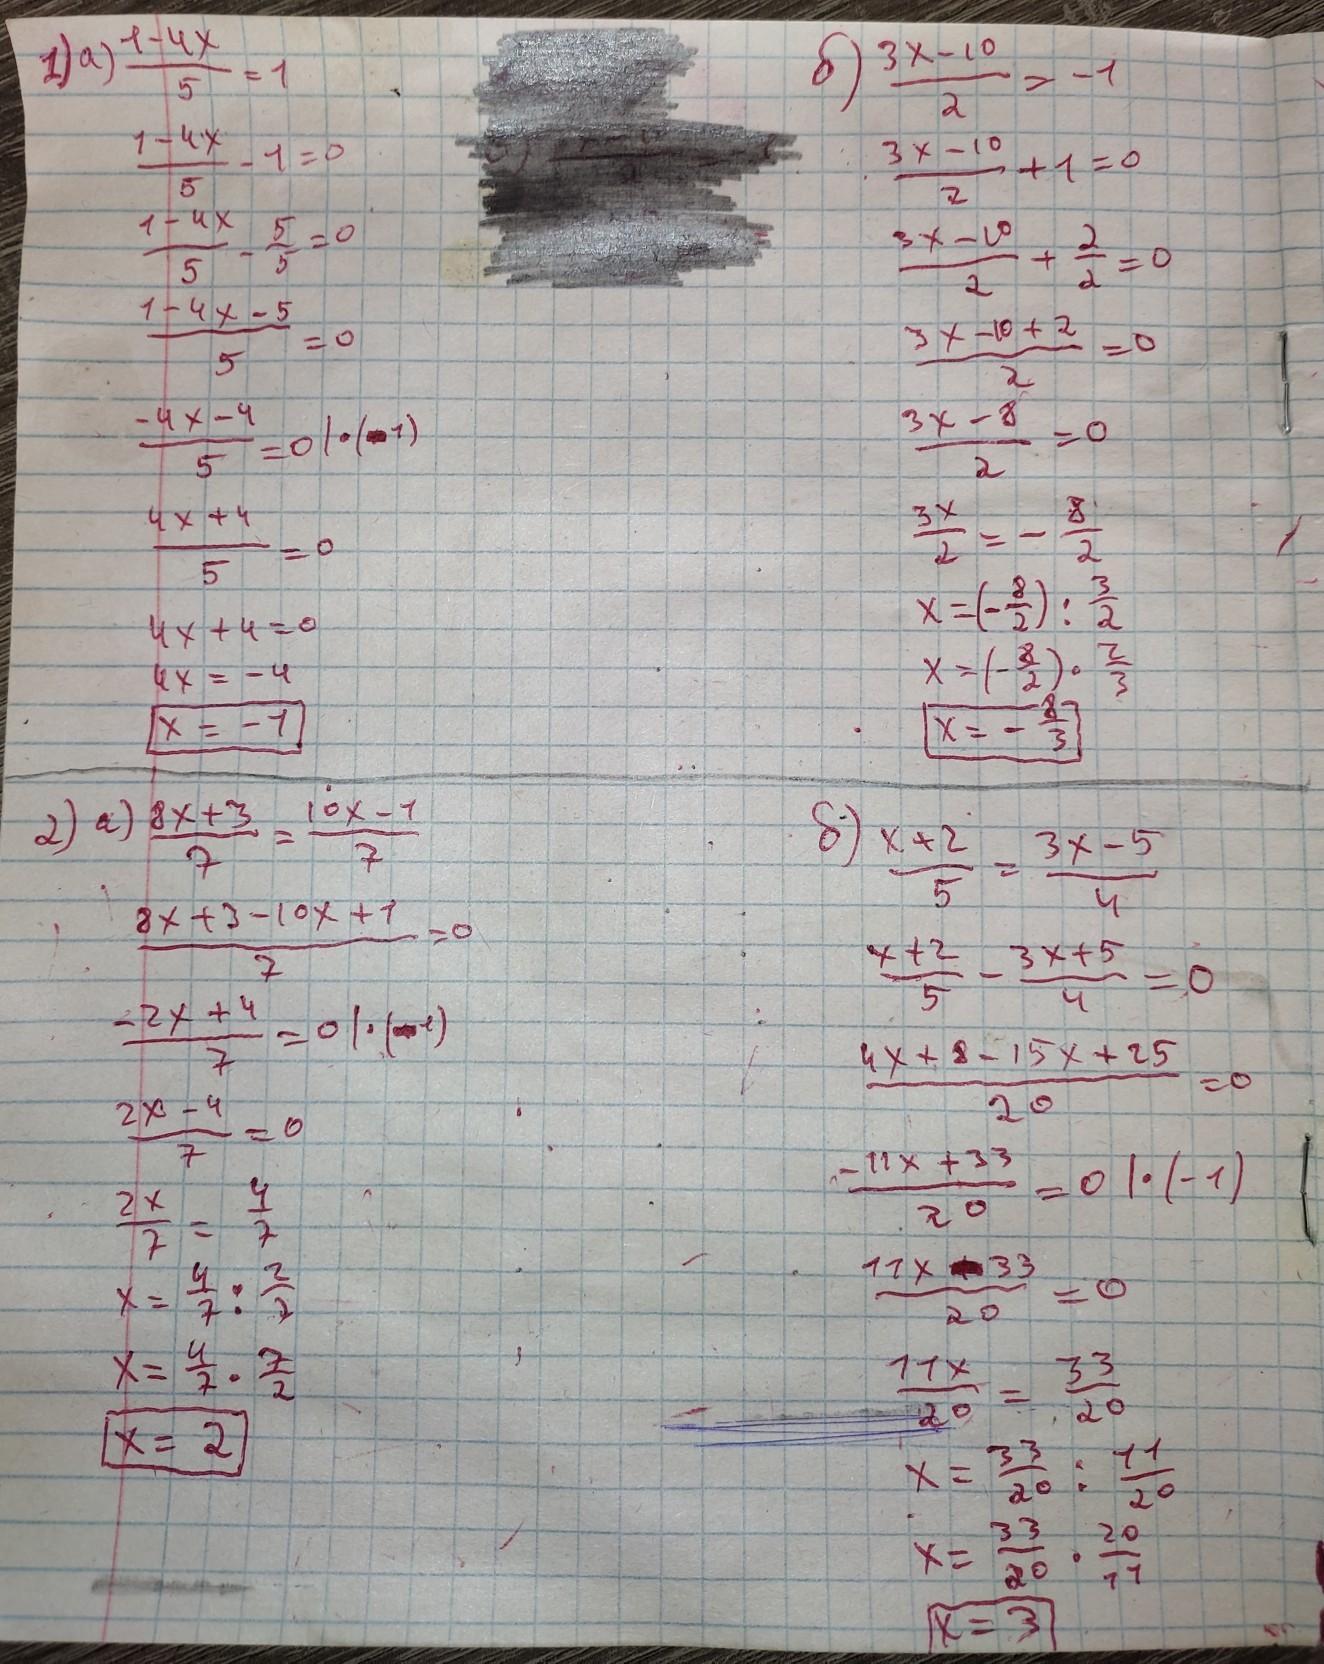 1) а) (1-4x)/5 = 1
(1-4x)/5 - 1 = 0
(1-4x)/5 - 5/5 = 0
(1-4x-5)/5 = 0
(-4x-4)/5 = 0 |·(-1)
(4x+4)/5 = 0
4x+4=0
4x = -4
x = -1
б) (3x-10)/2 = -1
(3x-10)/2 + 1 = 0
(3x-10)/2 + 2/2 = 0
(3x-10+2)/2 = 0
(3x-8)/2 = 0
3x/2 = - 8/2
x = (-8/2) : 3/2
x = (-8/2) · 2/3
x = - 8/3
2) а) (8x+3)/7 = (10x-1)/7
(8x+3-10x+1)/7 = 0
(-2x+4)/7 = 0 |·(-1)
(2x-4)/7 = 0
2x/7 = 4/7
x = 4/7 : 2/7
x = 4/7 · 7/2
x = 2
б) (x+2)/5 = (3x-5)/4
(x+2)/5 - (3x+5)/4 = 0
(4x+8-15x+25)/20 = 0
(-11x+33)/20 = 0 |·(-1)
(11x-33)/20 = 0
11x/20 = 33/20
x = 33/20 : 11/20
x = 33/20 · 20/11
x = 3